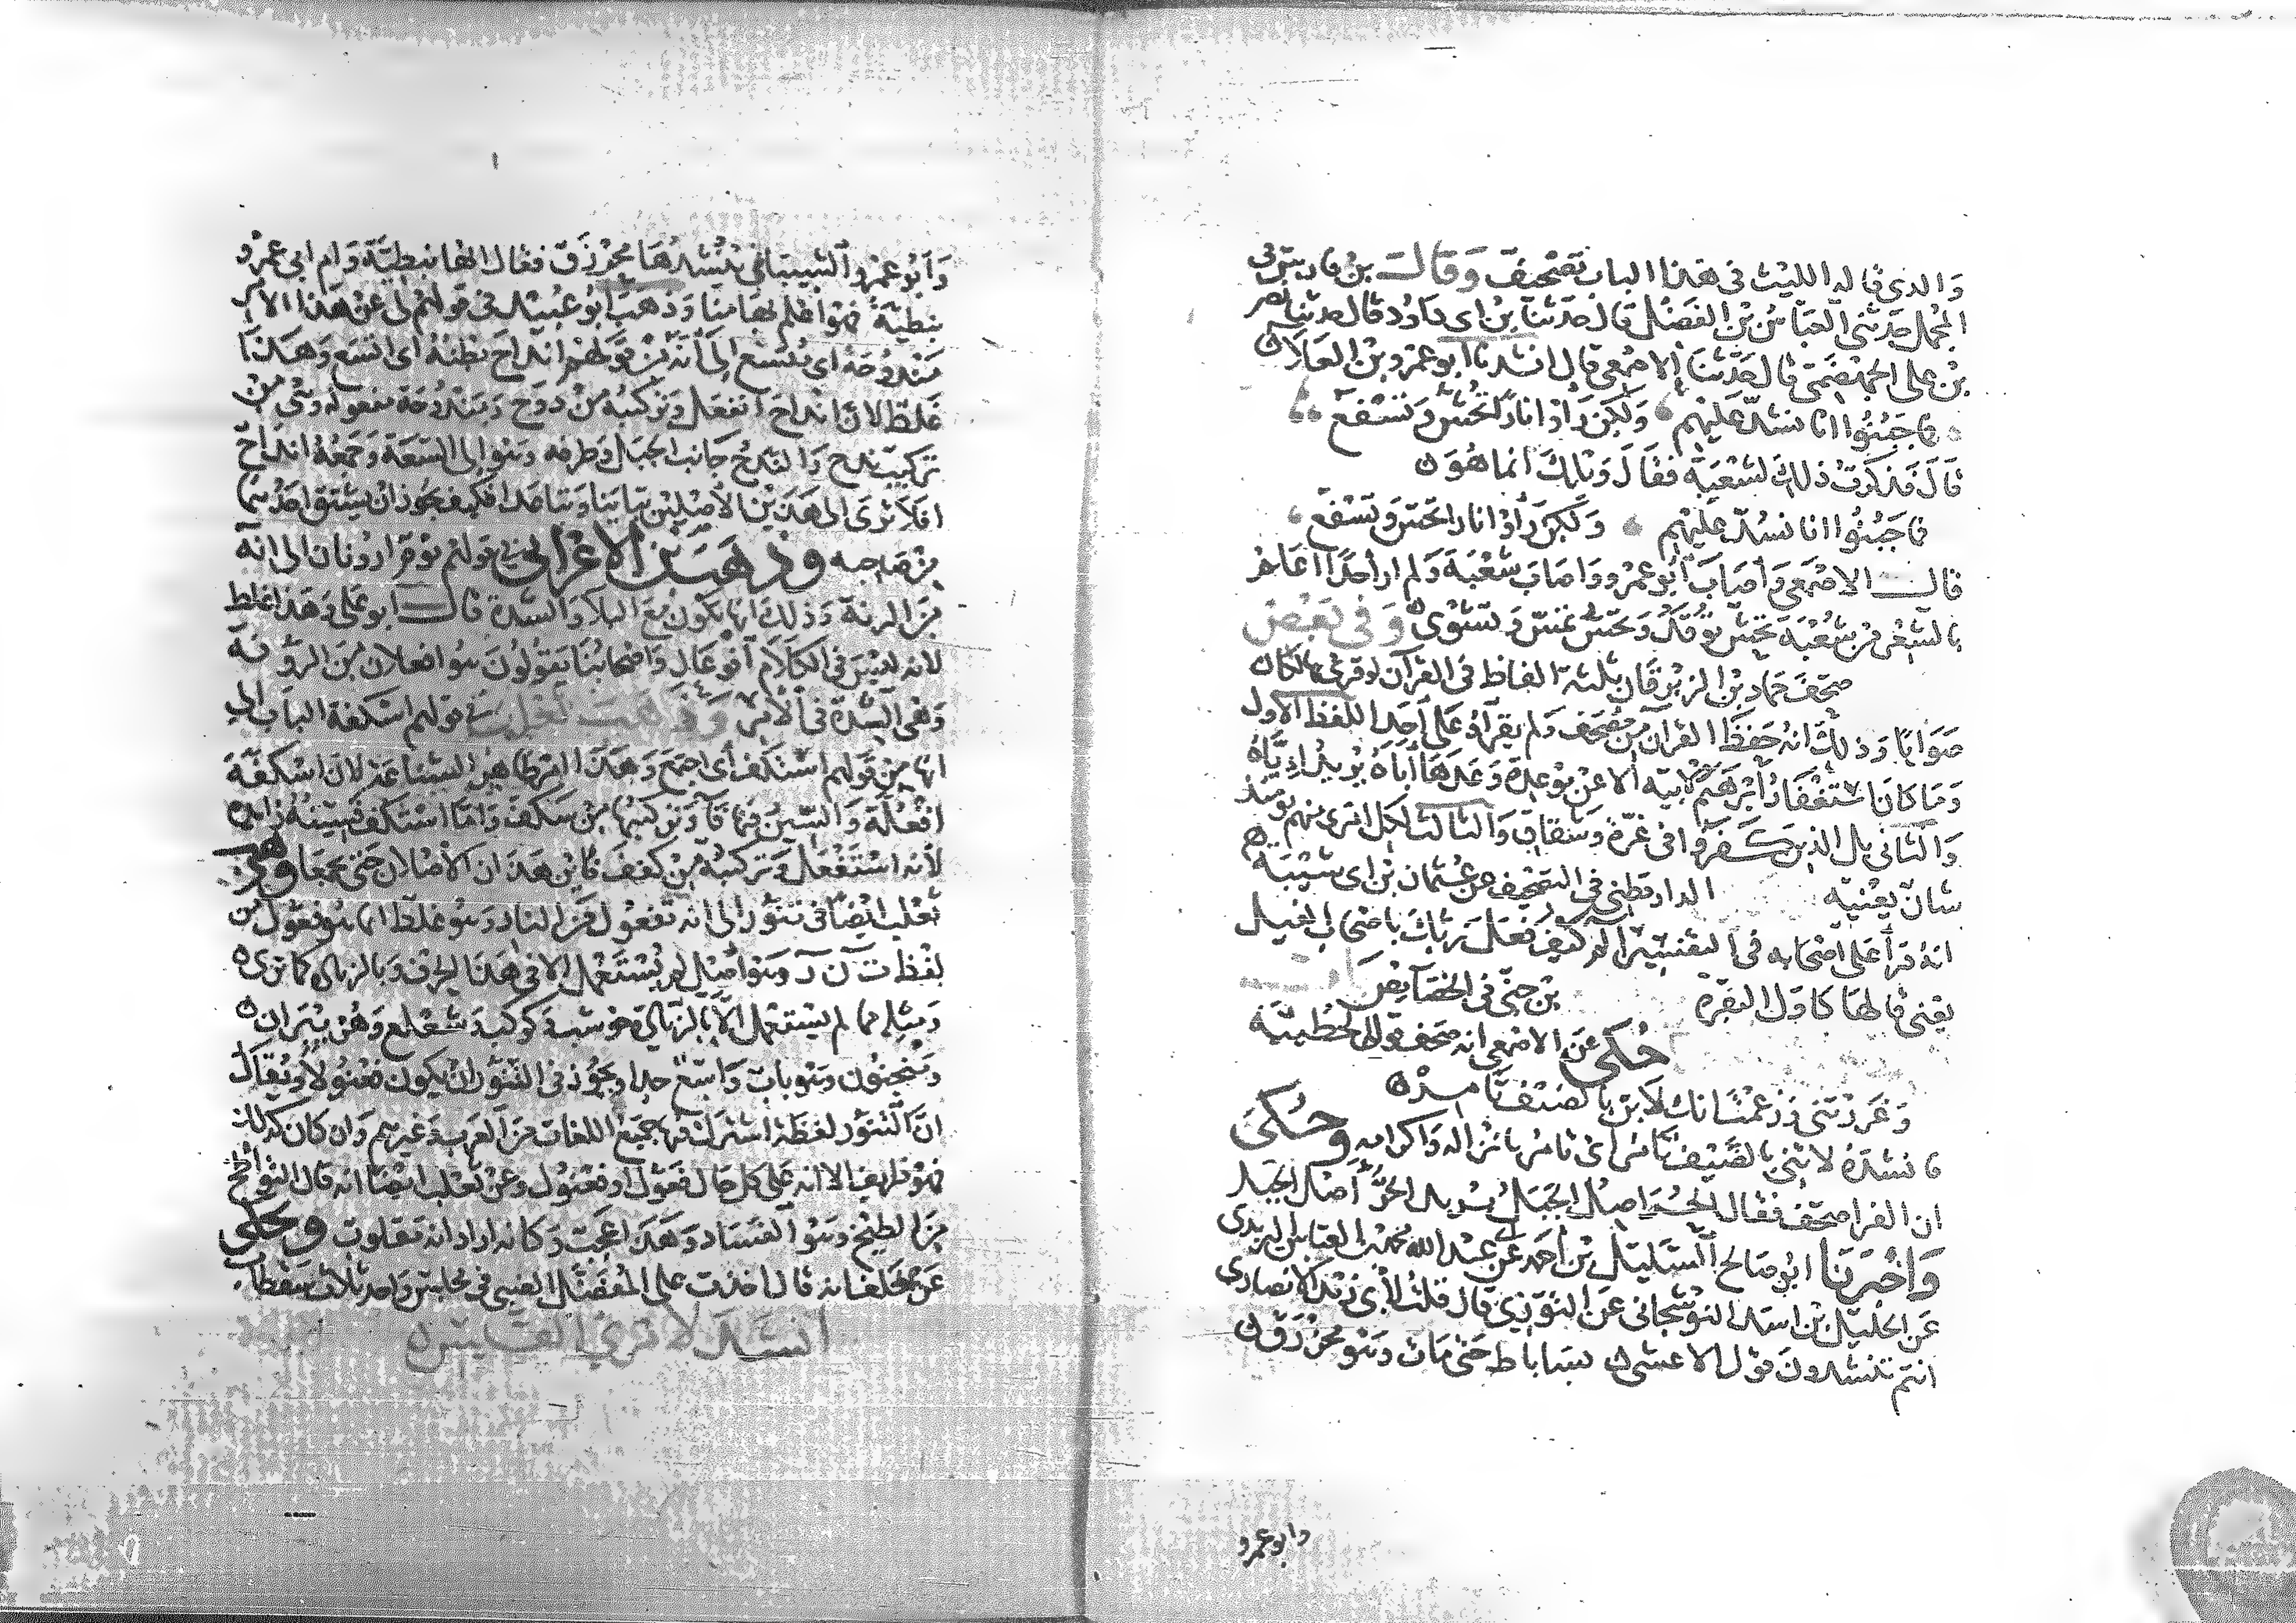 والذي قاله الليث في هذا الباب تصحيف وقال بن فارس في
المجمل حدثني العباس بن الفضل قال حدثنا بن ابي داود قال حدثنا نصر
بن علي الجهضمي قال حدثنا الاصمعي قال انشدنا ابو عمرو بن العلا
فاجبنوا انا نشد عليهم ولكن راوا نارا تحش وتسفع
قال فذكرت ذلك لشعبة فقال ويلك انما هو
فاجبنوا انا نشد عليهم ولكن راوا نارا تحس وتسفع
قال الاصمعي واصاب ابو عمرو واصاب شعبة ولم ار احدا اعلم
بالشعر من شعبة تحش توقد وتحس تمس وتشوى وفي بعض
صحف حماد بن الزبرقان ثلثة الفاظ في القران لو قرئ بها لكان
صوابا وذلك انه حفظ القران من مصحف ولم يقراه على احد اللفظ الاول
وما كان استغفار ابرهيم لابيه الا عن موعدة وعدها اباه يريد اياه
والثاني بل الذين كفروا في غرة وشقاق والثالث لكل امرئ منهم يومئذ
شان يعنيه الدارقطني في التصحيف عن عثمان بن ابي شيبة
انه قرا على اصحابه في التفسير الم كيف فعل ربك باصحاب الفيل
يعني قالها كاول البقرة بن جني في الخصايص
حكي عن الاصمعي انه صحف قول الحطيئة
وغررتني وزعمت انك لابن بالصيف تامر
فانشده لاتني بالضيف تامر اي تامر بانزاله واكرامه وحكى
ان الفرا صحف فقال الجر اصل الجبل يريد الجر اصل الجبل
واخبرنا ابو صالح السليل بن احمد عن عبد الله محمد بن العباس اليزيدي
عن الخليل بن اسد النوشجاني عن التوزي قال قلت لابي زيد الانصاري
انتم تنشدون قول الاعشى بساباط حتى مات وهو محزرق
وابو عمرو
وابو عمرو الشيباني ينشدها محرزق فقال انها نبطية وام ابي عمرو
نبطية فهو اعلم بها منا وذهب ابو عبيد في قولهم لي عن هذا الامر
مندوحة اي متسع الى انه من قولهم انداح بطنه اي اتسع وهذا
غلط لان انداح انفعل وتركيبه من دوح ومندوحة مفعولة وهي من
تركيب ندح والندح جانب الجبل وطرفه وهو الى السعة وجمعه انداح
افلا ترى الى هذين الاصلين تباينا وتباعدا فكيف يجوز ان يشتق احدهما
من صاحبه وذهب بن الاعرابي في قولهم يوم ارونان الى انه
من الرنة وذلك انها تكون مع البلا والشدة قال ابو علي وهذا غلط
لانه ليس في الكلام افوعال واصحابنا يقولون هو افعلان من الرونة
وهي الشدة في الامر وذهب ثعلب في قولهم اسكفة الباب الى
انها من قولهم استكف اي اجتمع وهذا امر ظاهر الشناعة لان اسكفة
افعلة والسين فيها فا وتركيبها من سكف واما استكف فسينه زايدة
لانه استفعل وتركيبه من كفف فاين هذان الاصلان حتى يجمعا وذهب
ثعلب ايضا في تنور الى انه تفعول من النار وهو غلط انما هو فعول من
لفظ ت ن ر وهو اصل لم يستعمل الا في هذا الحرف وبالزيادة كما ترى
ومثله مما لم يستعمل الا بالزيادة حوشب وكوكب وشعلع وهزنبران
ومنجنون وهو باب واسع جدا ويجوز في التنور ان يكون فعنولا ويقال
ان التنور لفظة اشترك فيها جميع اللغات من العرب وغيرهم وان كان كذلك
فهو ظريف الا انه على كل حال فعول او فعنول وعن ثعلب ايضا انه قال التواطخ
من الطيخ وهو الفساد وهذا عجب وكانه اراد انه مقلوب ويحكى
عن خلف انه قال اخذت على المفضل الضبي في مجلس واحد ثلاث سقطات
انشد لامرئ القيس